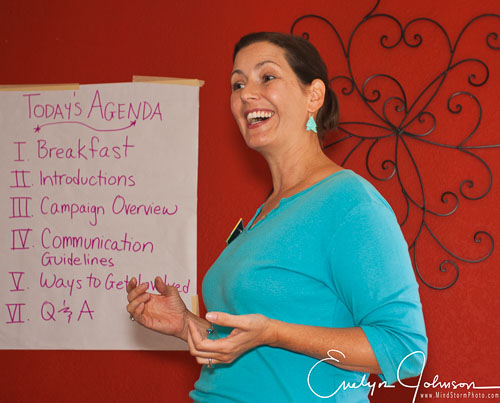 TODAY'S AGENDA
I. Breakfast
II. Introductions
III. Campaign Overview
IV. Communication
Guidelines
V. Ways to Get Involved
VI. Q & A
Evelyn Johnson
www.MindStormPhoto.com